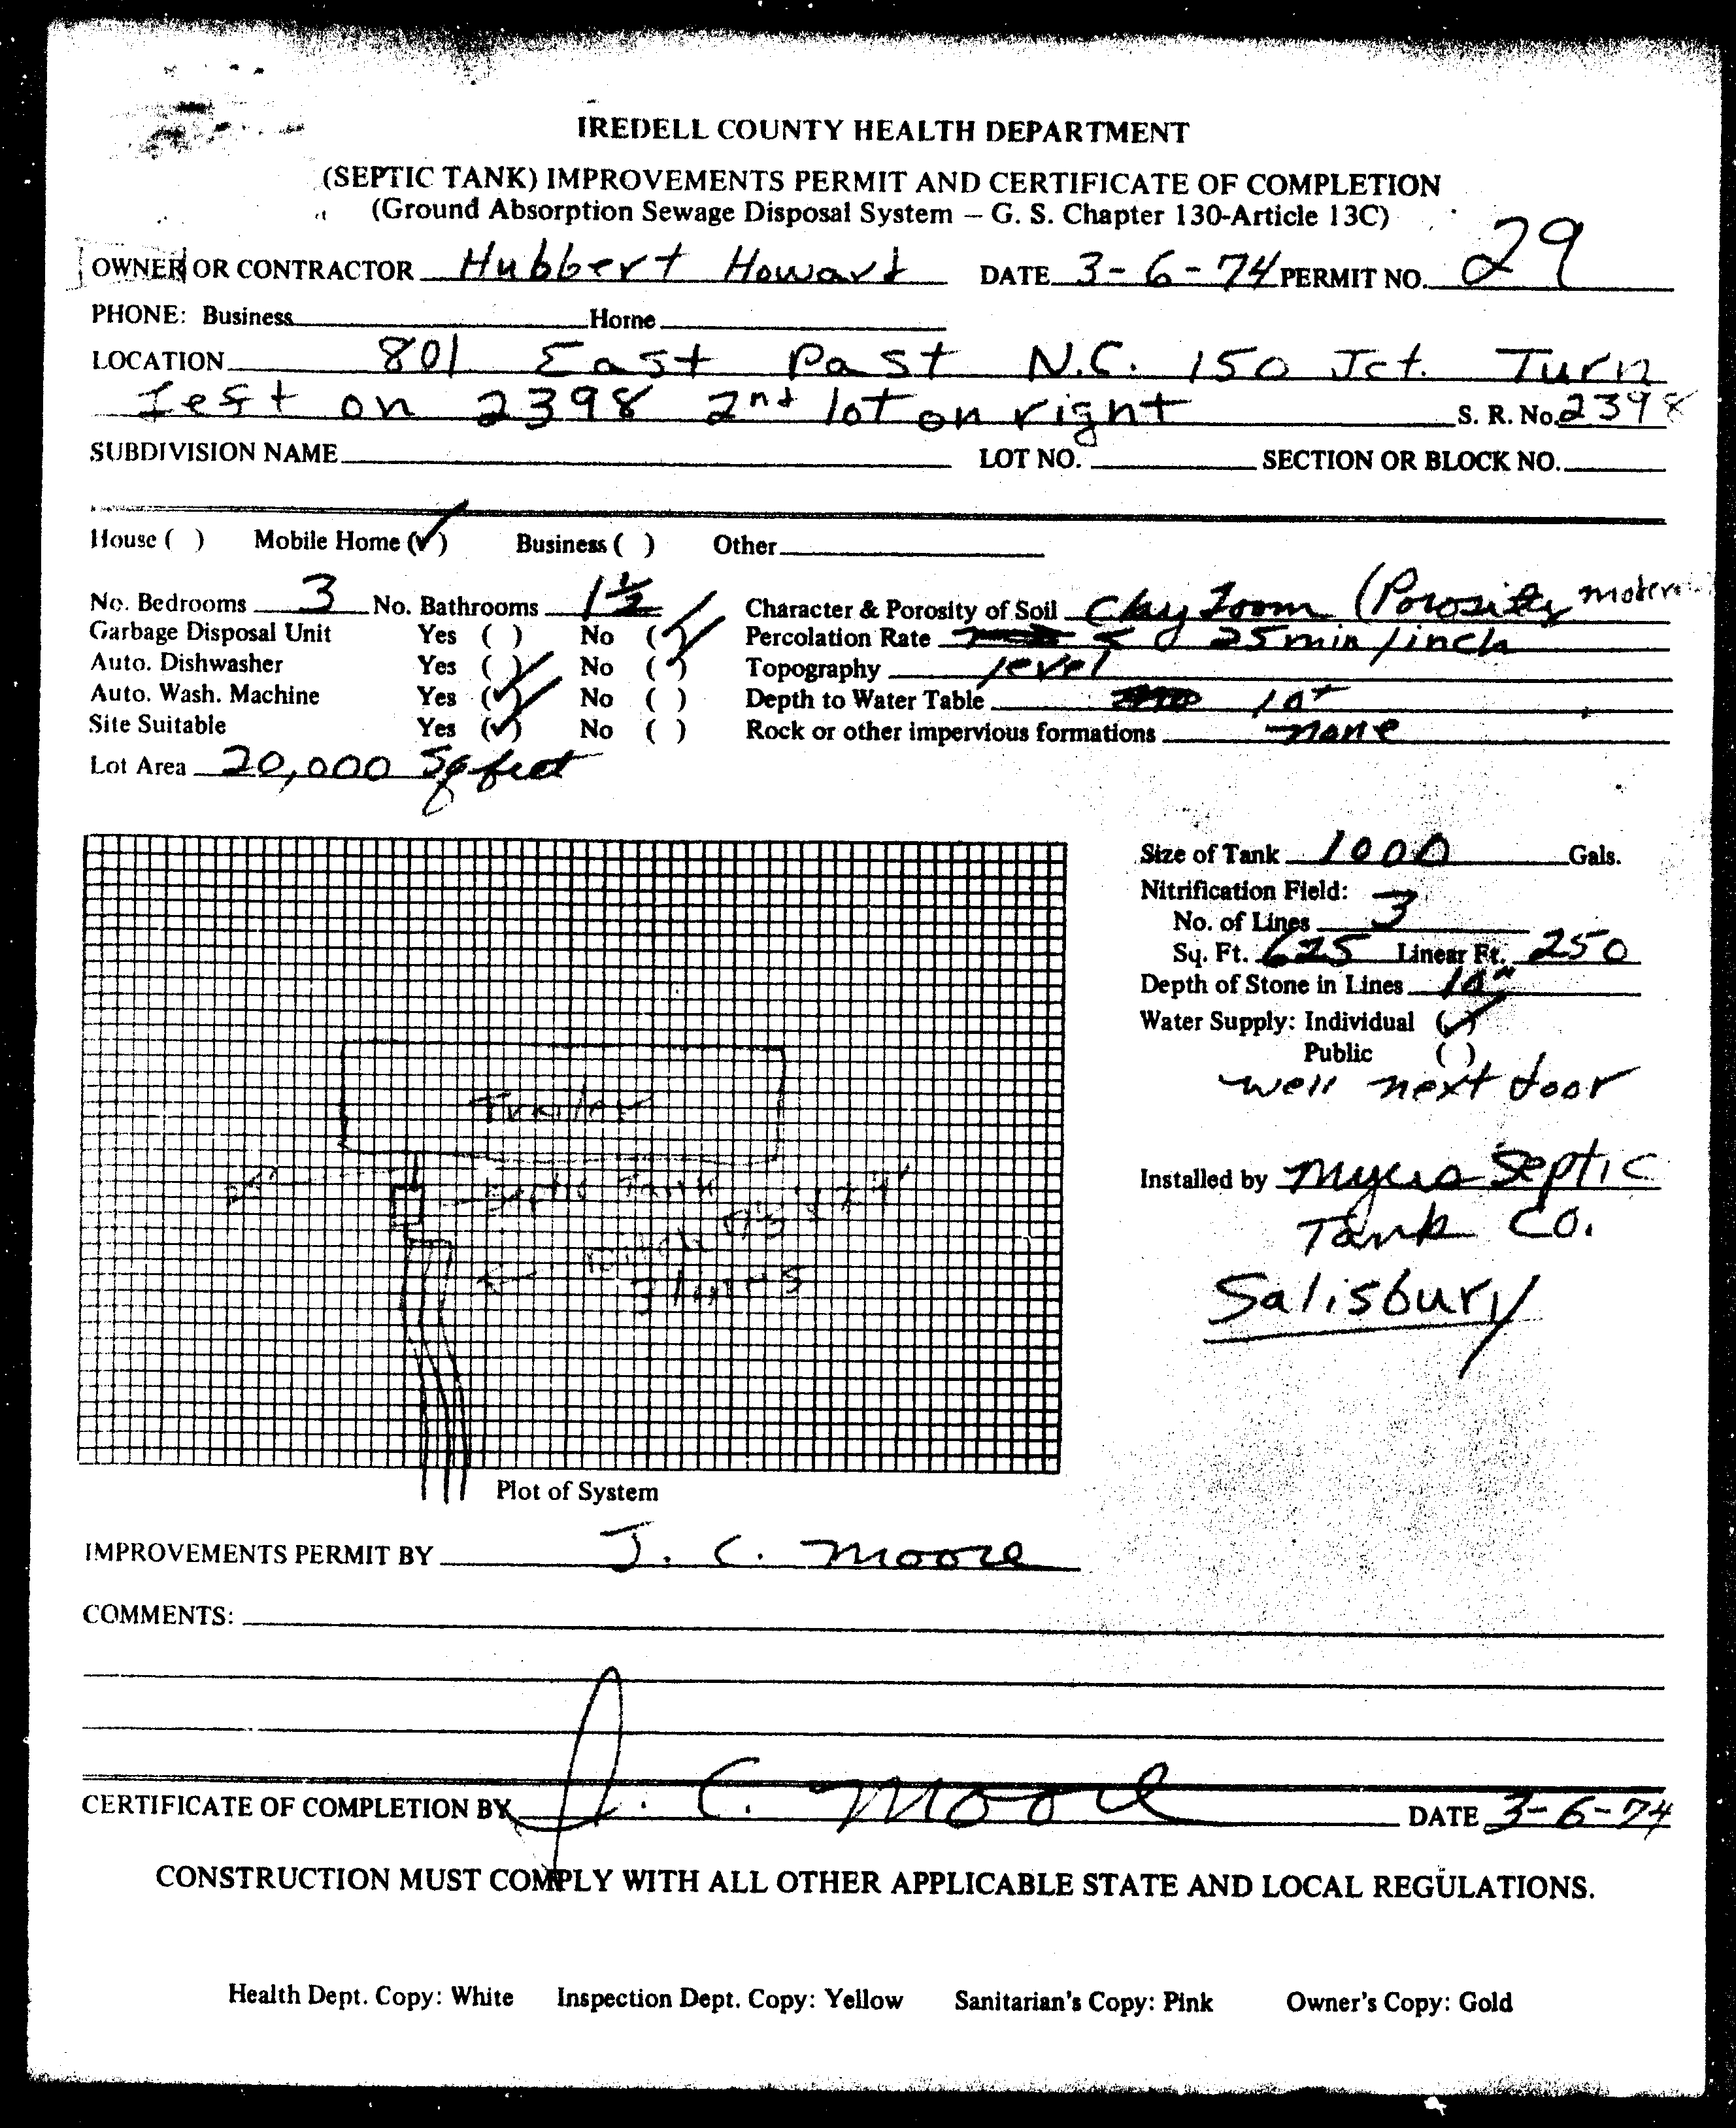 IREDELL COUNTY HEALTH DEPARTMENT
(SEPTIC TANK) IMPROVEMENTS PERMIT AND CERTIFICATE OF COMPLETION
(Ground Absorption Sewage Disposal System – G. S. Chapter 130-Article 13C)
OWNER OR CONTRACTOR Hubbert Howard DATE 3-6-74 PERMIT NO. 29
PHONE: Business Home
LOCATION 801 East Past N.C. 150 Jct. Turn
left on 2398 2nd lot on right S. R. No. 2398
SUBDIVISION NAME LOT NO. SECTION OR BLOCK NO.
House ( ) Mobile Home (✓) Business ( ) Other
No. Bedrooms 3 No. Bathrooms 1½ Character & Porosity of Soil Clay Loom (Porosity
Garbage Disposal Unit Yes ( ) No (✓) Percolation Rate 25 min/inch
Auto. Dishwasher Yes ( ) No (✓) Topography level
Auto. Wash. Machine Yes (✓) No ( ) Depth to Water Table 10+
Site Suitable Yes (✓) No ( ) Rock or other impervious formations none
Lot Area 20,000 Sq feet
Size of Tank 1000 Gals.
Nitrification Field:
No. of Lines 3
Sq. Ft. 625 Linear Ft. 250
Depth of Stone in Lines 10"
Water Supply: Individual (✓)
Public ( )
well next door
Installed by Myers Septic
Tank Co.
Salisbury
Trailer
Septic Tank
3 lines
Plot of System
IMPROVEMENTS PERMIT BY J. C. Moore
COMMENTS:
CERTIFICATE OF COMPLETION BY J. C. Moore DATE 3-6-74
CONSTRUCTION MUST COMPLY WITH ALL OTHER APPLICABLE STATE AND LOCAL REGULATIONS.
Health Dept. Copy: White Inspection Dept. Copy: Yellow Sanitarian's Copy: Pink Owner's Copy: Gold